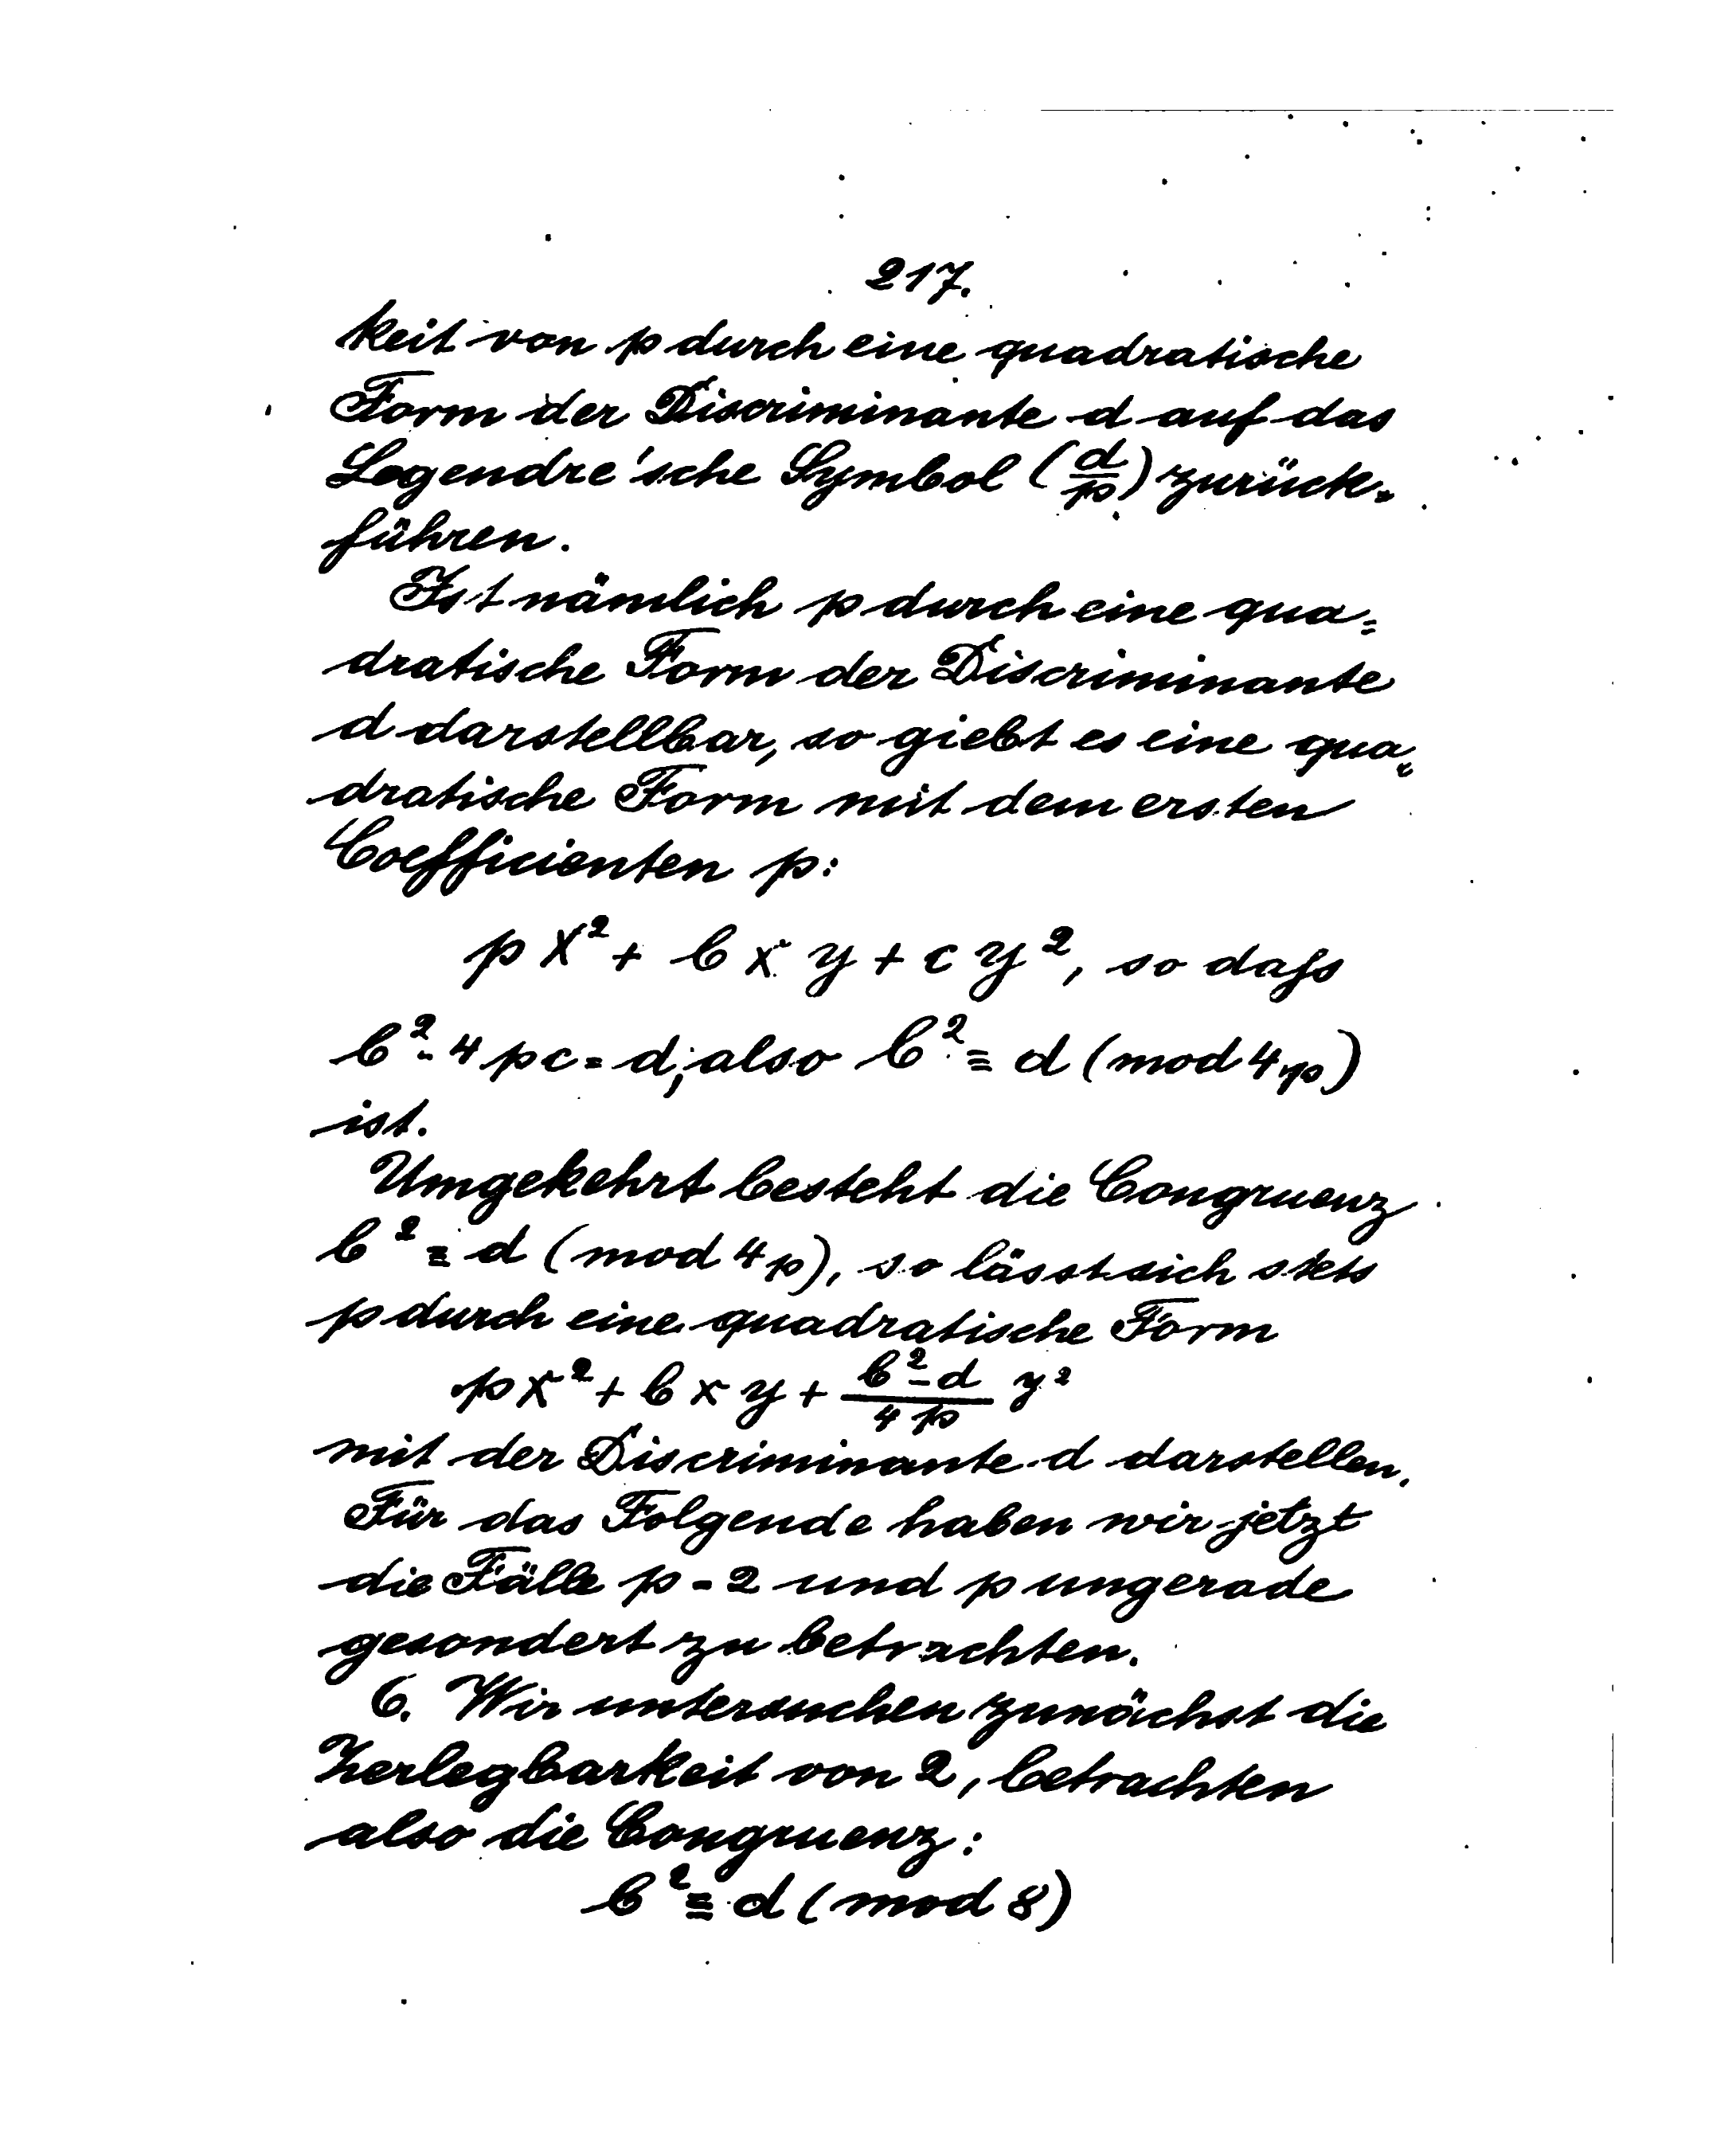 217.
keit von p durch eine quadratische
Form der Discriminante d auf das
Legendre'sche Symbol (d/p) zurück-
führen.
Ist nämlich p durch eine qua=
dratische Form der Discriminante
d darstellbar, so giebt es eine qua=
dratische Form mit dem ersten
Coefficienten p:
p x² + b x y + c y², so daſs
b² - 4 p c = d, also b² ≡ d (mod 4p)
ist.
Umgekehrt besteht die Congruenz
b² ≡ d (mod 4p), so lässt sich stets
p durch eine quadratische Form
p x² + b x y + (b² - d)/(4p) y²
mit der Discriminante d darstellen.
Für das Folgende haben wir jetzt
die Fälle p = 2 und p ungerade
gesondert zu betrachten.
6. Wir untersuchen zunächst die
Zerlegbarkeit von 2, betrachten
also die Congruenz:
b² ≡ d (mod 8)